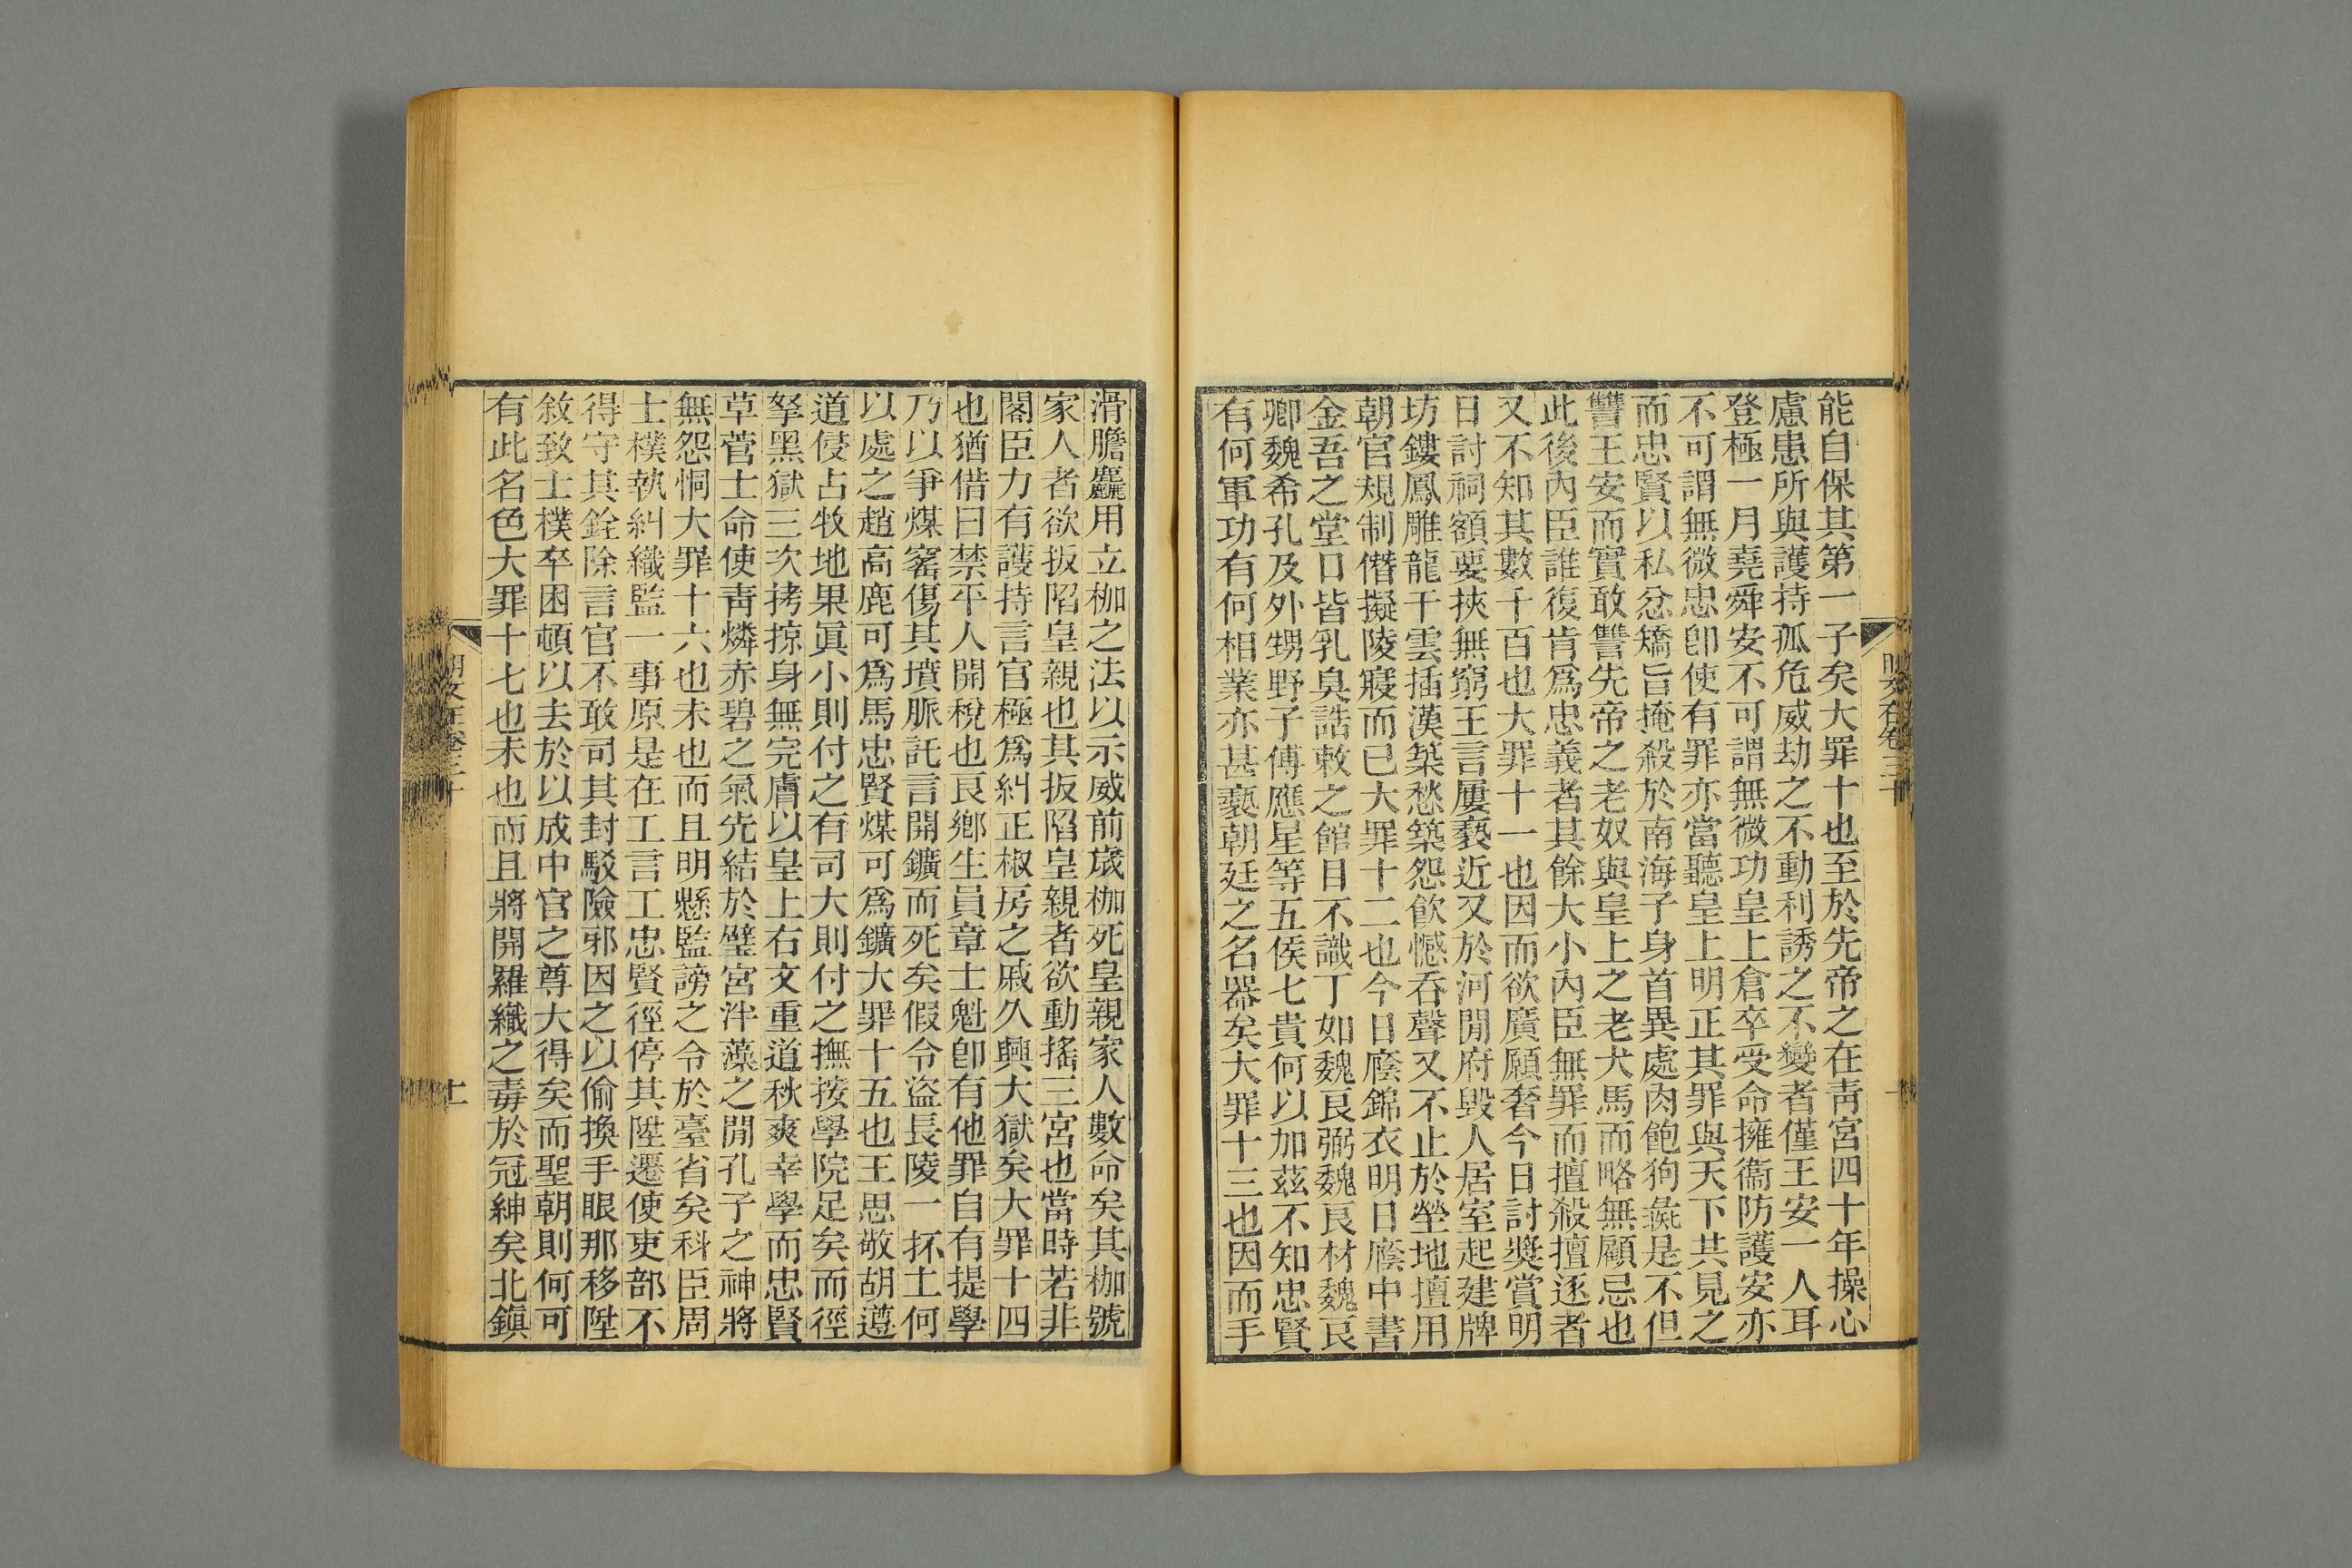 能自保其第一子矣大罪十也至於先帝之在靑宮四十年操心
慮患所與護持孤危威劫之不動利誘之不變者僅王安一人耳
登極一月堯舜安不可謂無微功皇上倉卒受命擁衞防護安亦
不可謂無微忠卽使有罪亦當聽皇上明正其罪與天下共見之
而忠賢以私忿矯旨掩殺於南海子身首異處肉飽狗彘是不但
讐王安而實敢讐先帝之老奴與皇上之老犬馬而略無顧忌也
此後內臣誰復肯爲忠義者其餘大小內臣無罪而擅殺擅逐者
又不知其數千百也大罪十一也因而欲廣願奢今日討獎賞明
日討祠額要挾無窮王言屢褻近又於河閒府毀人居室起建牌
坊鏤鳳雕龍干雲插漢築愁築怨飮憾吞聲又不止於塋地擅用
朝官規制僭擬陵寢而已大罪十二也今日廕錦衣明日廕中書
金吾之堂口皆乳臭誥敕之館目不識丁如魏良弼魏良材魏良
卿魏希孔及外甥野子傅應星等五侯七貴何以加茲不知忠賢
有何軍功有何相業亦甚褻朝廷之名器矣大罪十三也因而手
滑膽麤用立枷之法以示威前歲枷死皇親家人數命矣其枷號
家人者欲扳陷皇親也其扳陷皇親者欲動搖三宮也當時若非
閣臣力有護持言官極爲糾正椒房之戚久興大獄矣大罪十四
也猶借曰禁平人開稅也良鄕生員章士魁卽有他罪自有提學
乃以爭煤窰傷其墳脈託言開鑛而死矣假令盜長陵一抔土何
以處之趙高鹿可爲馬忠賢煤可爲鑛大罪十五也王思敬胡遵
道侵占牧地果眞小則付之有司大則付之撫按學院足矣而徑
拏黑獄三次拷掠身無完膚以皇上右文重道秋爽幸學而忠賢
草菅士命使靑燐赤碧之氣先結於璧宮泮藻之閒孔子之神將
無怨恫大罪十六也未也而且明懸監謗之令於臺省矣科臣周
士樸執糾織監一事原是在工言工忠賢徑停其陞遷使吏部不
得守其銓除言官不敢司其封駁險邪因之以偷換手眼那移陞
敘致士樸卒困頓以去於以成中官之尊大得矣而聖朝則何可
有此名色大罪十七也未也而且將開羅織之毒於冠紳矣北鎭